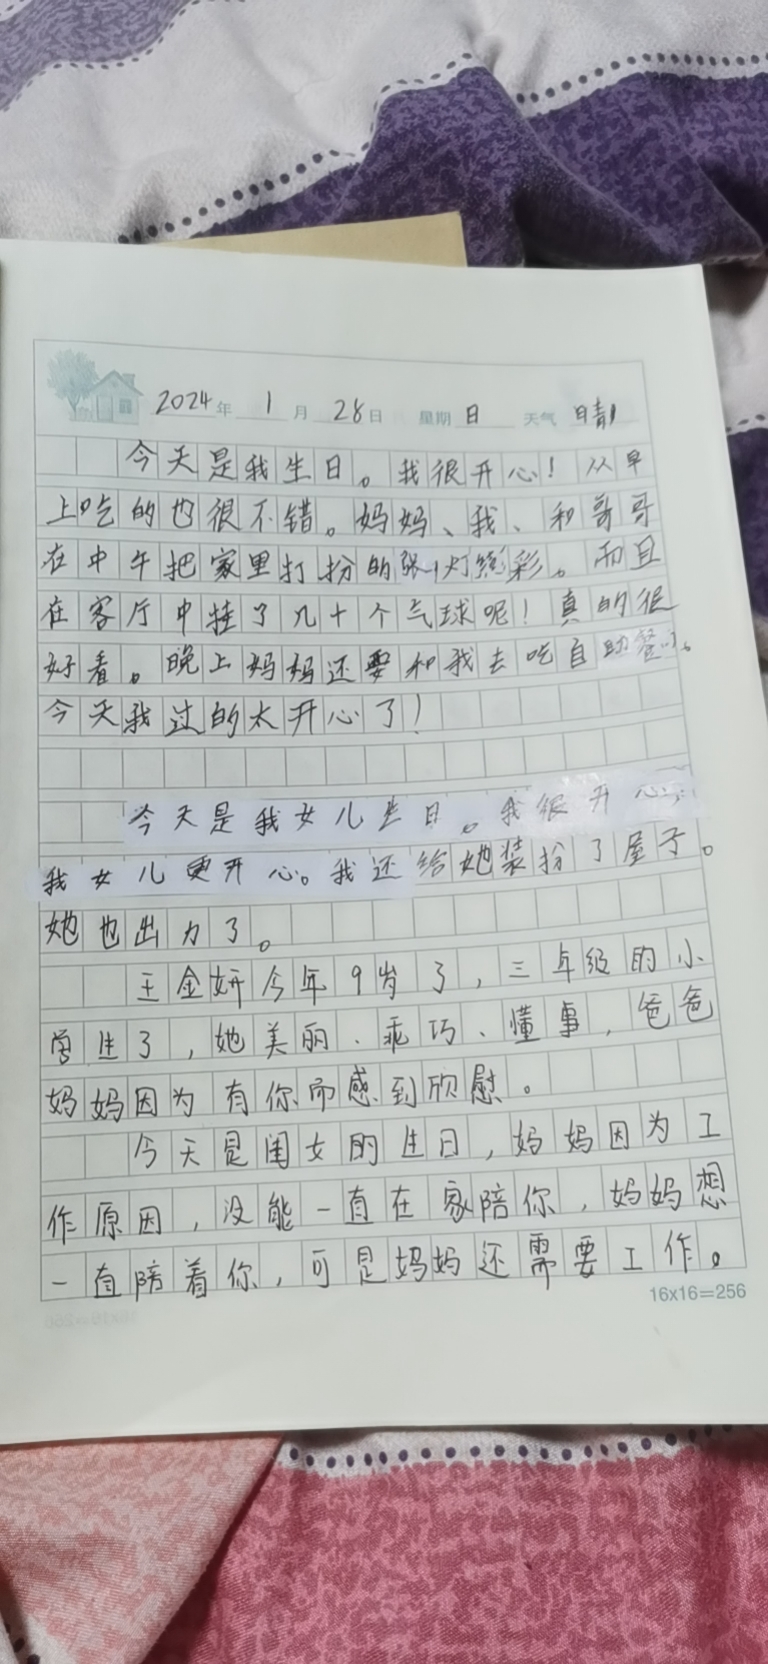 2024年 1月 28日 星期日 天气 晴
今天是我生日。我很开心！从早
上吃的也很不错。妈妈、我、和哥哥
在中午把家里打扮的张灯结彩。而且
在客厅中挂了几十个气球呢！真的很
好看。晚上妈妈还要和我去吃自助餐。
今天我过的太开心了！
今天是我女儿生日。我很开心，
我女儿更开心。我还给她装扮了屋子。
她也出力了。
王金妍今年9岁了，三年级的小
学生了，她美丽、乖巧、懂事，爸爸
妈妈因为有你而感到欣慰。
今天是闺女的生日，妈妈因为工
作原因，没能一直在家陪你，妈妈想
一直陪着你，可是妈妈还需要工作。
16x16=256